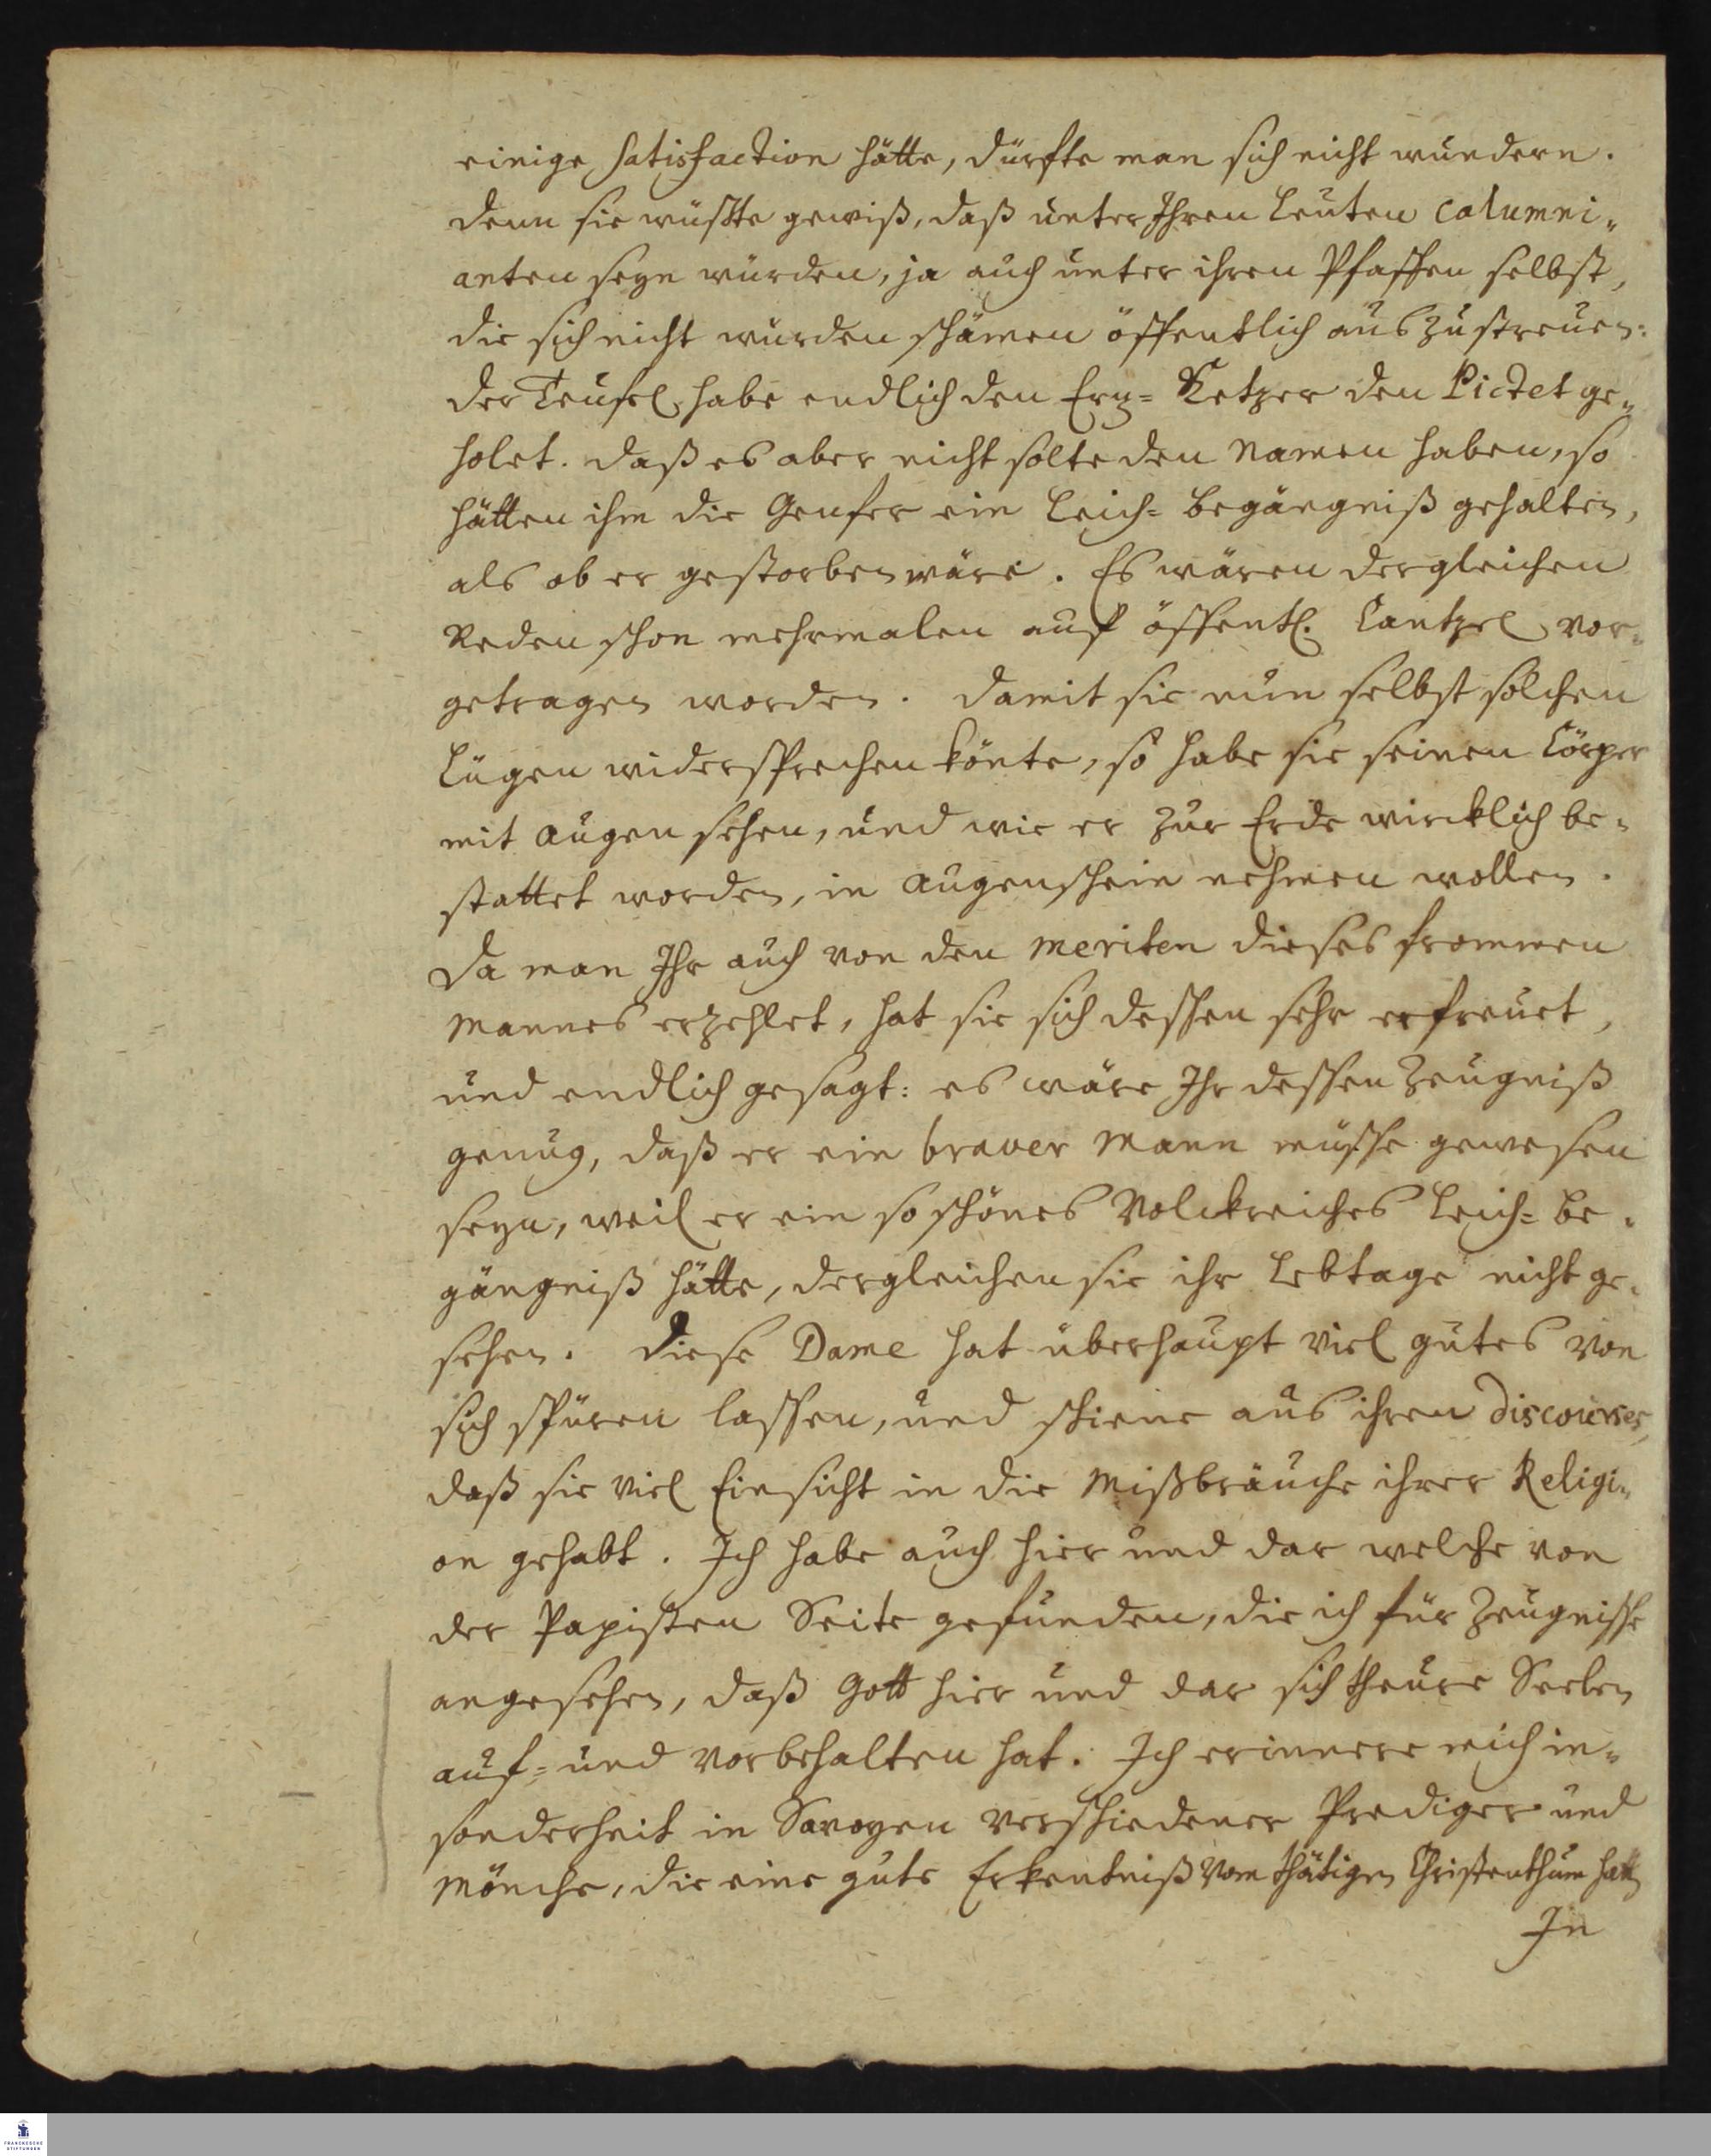 einige Satisfaction hätte, dürfte man sich nicht wundern.
denn sie wüste gewiß, daß unter Ihren Leuten calumni„
anten seyn würden, ja auch unter ihren Pfaffen selbst,
die sich nicht würden schämen öffentlich auszustreuen:
der Teufel habe endlich den Ertz= Ketzer den Pictet ge„
holet. daß es aber nicht solte den Namen haben, so
hätten ihm die Genfer ein Leich= begängniß gehalten,
als ob er gestorben wäre. Es wären dergleichen
Reden schon mehrmalen auf öffentl. Cantzel vor„
getragen worden. Damit sie nun selbst solchen
Lügen widersprechen könte, so habe sie seinen Cörper
mit Augen sehen, und wie er zur Erde wircklich be„
stattet worden, in Augenschein nehmen wollen.
Da man Ihr auch von den meriten dieses frommen
Mannes erzehlet, hat sie sich dessen sehr erfreuet,
und endlich gesagt: es wäre Ihr dessen Zeugniß
genug, daß er ein braver Mann müsse gewesen
seyn, weil er ein so schönes Volckreiches Leich= be„
gängniß hätte, dergleichen sie ihr Lebtage nicht ge„
sehen. Diese Dame hat überhaupt viel gutes von
sich spüren lassen, und schiene aus ihren discourses,
daß sie viel Einsicht in die Mißbräuche ihrer Religi„
on gehabt. Ich habe auch hier und dar welche von
der Papisten Seite gefunden, die ich für Zeugnisse
angesehen, daß Gott hier und dar sich theure Seelen
auf= und vorbehalten hat. Ich erinnere mich in„
sonderheit in Savoyen verschiedener Prediger und
Mönche, die eine gute Erkentniß vom thätigen Christenthum hatten
In
FRANCKESCHE
STIFTUNGEN